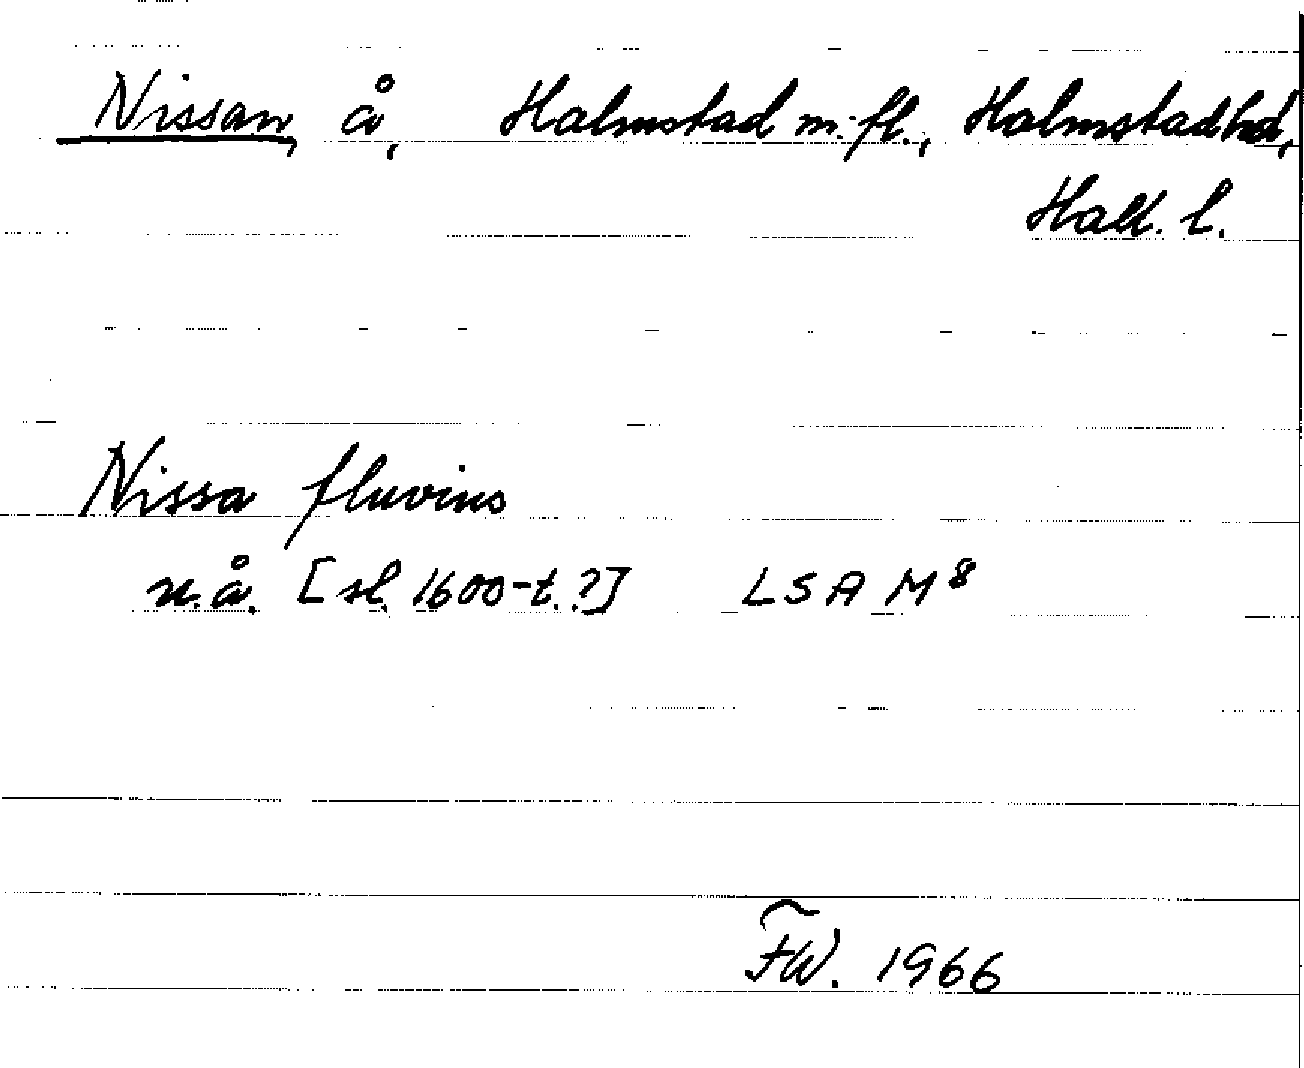 Nissan, å, Halmstad m. fl., Halmstad hd,
Hall. l.
Nissa fluvius
u.å. [sl. 1600-t.?] LSA M8
FW. 1966